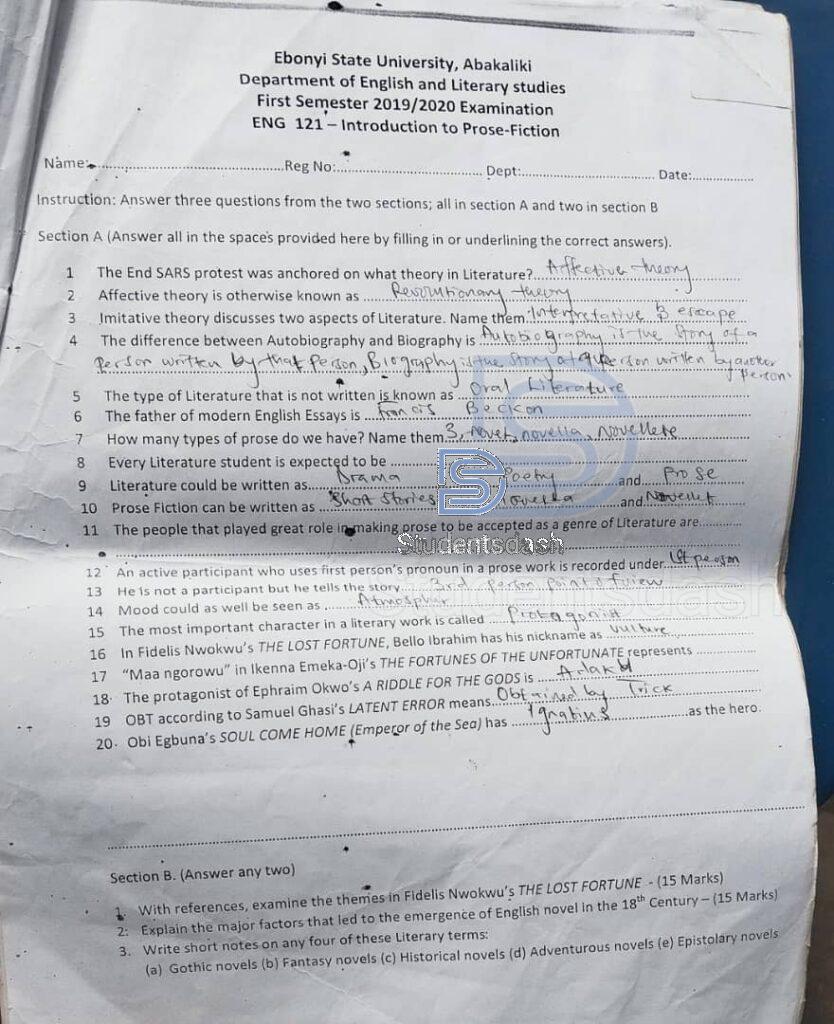 Ebonyi State University, Abakaliki
Department of English and Literary studies
First Semester 2019/2020 Examination
ENG 121 – Introduction to Prose-Fiction
Name:..............................Reg No:.............................. Dept:.............................. Date:...............
Instruction: Answer three questions from the two sections; all in section A and two in section B
Section A (Answer all in the spaces provided here by filling in or underlining the correct answers).
1 The End SARS protest was anchored on what theory in Literature?...Affective theory
2 Affective theory is otherwise known as ......Revolutionary theory
3 Imitative theory discusses two aspects of Literature. Name them. Interpretative & escape
4 The difference between Autobiography and Biography is Autobiography is the story of a
person written by that person, Biography is the story of a person written by another
person.
5 The type of Literature that is not written is known as ...Oral Literature
6 The father of modern English Essays is ...Francis Beckon
7 How many types of prose do we have? Name them. 3, novel, novella, Novellete
8 Every Literature student is expected to be ..............................
9 Literature could be written as...Drama......Poetry......and...Prose
10 Prose Fiction can be written as ...Short Stories......Novella......and Novellet
11 The people that played great role in making prose to be accepted as a genre of Literature are............
Studentsdash
12 An active participant who uses first person's pronoun in a prose work is recorded under...1st person
13 He is not a participant but he tells the story......3rd person point of view
14 Mood could as well be seen as ......Atmospher
15 The most important character in a literary work is called ......Protagonist
16 In Fidelis Nwokwu's THE LOST FORTUNE, Bello Ibrahim has his nickname as ...vulture
17 "Maa ngorowu" in Ikenna Emeka-Oji's THE FORTUNES OF THE UNFORTUNATE represents ...............
18· The protagonist of Ephraim Okwo's A RIDDLE FOR THE GODS is ......
19 OBT according to Samuel Ghasi's LATENT ERROR means...Obtained by Trick
20· Obi Egbuna's SOUL COME HOME (Emperor of the Sea) has ...Ignatius...............as the hero.
Section B. (Answer any two)
1. With references, examine the themes in Fidelis Nwokwu's THE LOST FORTUNE - (15 Marks)
2: Explain the major factors that led to the emergence of English novel in the 18th Century – (15 Marks)
3. Write short notes on any four of these Literary terms:
(a) Gothic novels (b) Fantasy novels (c) Historical novels (d) Adventurous novels (e) Epistolary novels